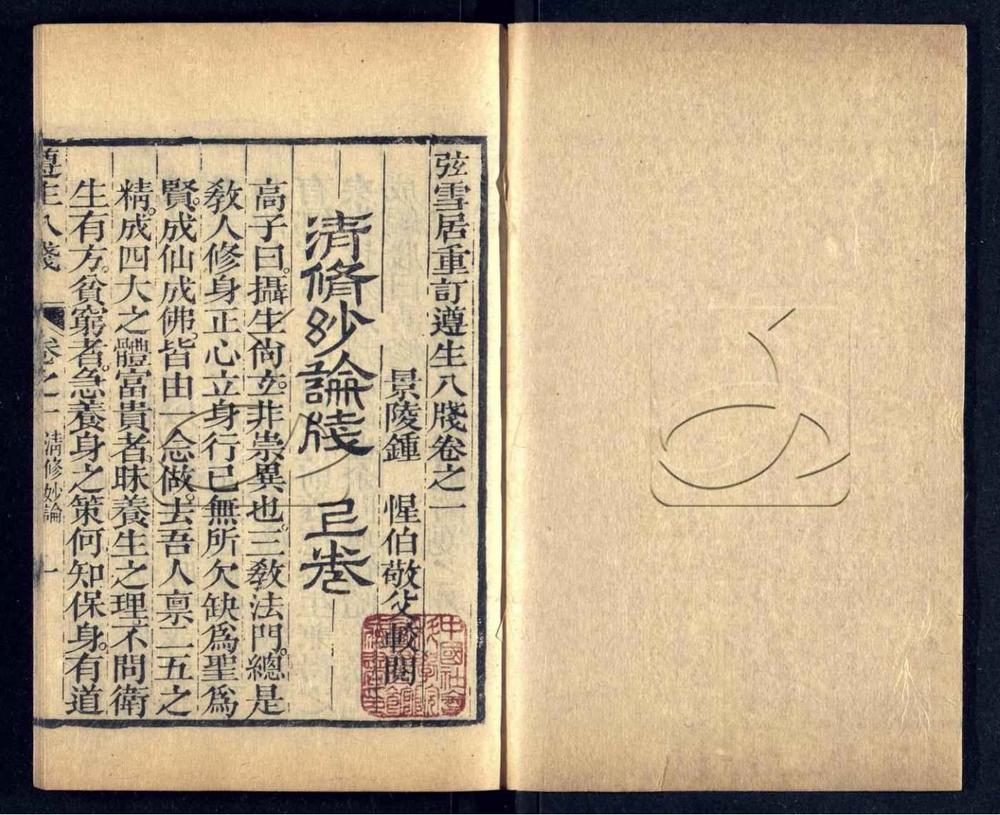 弦雪居重訂遵生八牋卷之一
景陵鍾 惺伯敬父較閱
清脩妙論牋 上卷
高子曰。攝生尚玄。非崇異也。三敎法門。總是
敎人修身正心立身行己無所欠缺。爲聖爲
賢。成仙成佛。皆由一念做去。吾人禀二五之
精。成四大之體。富貴者。昧養生之理。不問衛
生有方。貧窮者。急養身之策。何知保身。有道
遵生八牋 卷之一 清修妙論 一